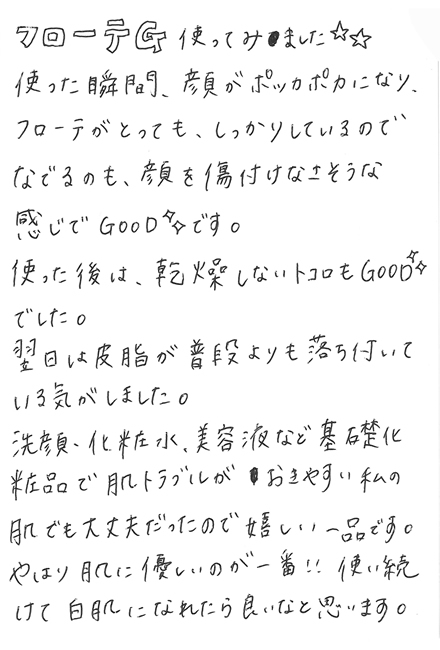 フローテG 使ってみました☆☆
使った瞬間、顔がポッカポカになり、
フローテがとっても、しっかりしているので
なでるのも、顔を傷付けなさそうな
感じでGOOD✧です。
使った後は、乾燥しないトコロもGOOD✧
でした。
翌日は皮脂が普段よりも落ち付いて
いる気がしました。
洗顔・化粧水、美容液など基礎化
粧品で肌トラブルがおきやすい私の
肌でも大丈夫だったので嬉しい一品です。
やはり肌に優しいのが一番!! 使い続
けて白肌になれたら良いなと思います。